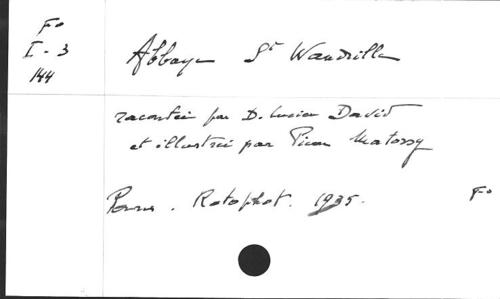 Fo
I - 3
144
Abbaye St Wandrille
racontée par D. Lucien David
et illustrée par Pierre Matossy
Rotophot. 1935. Fo